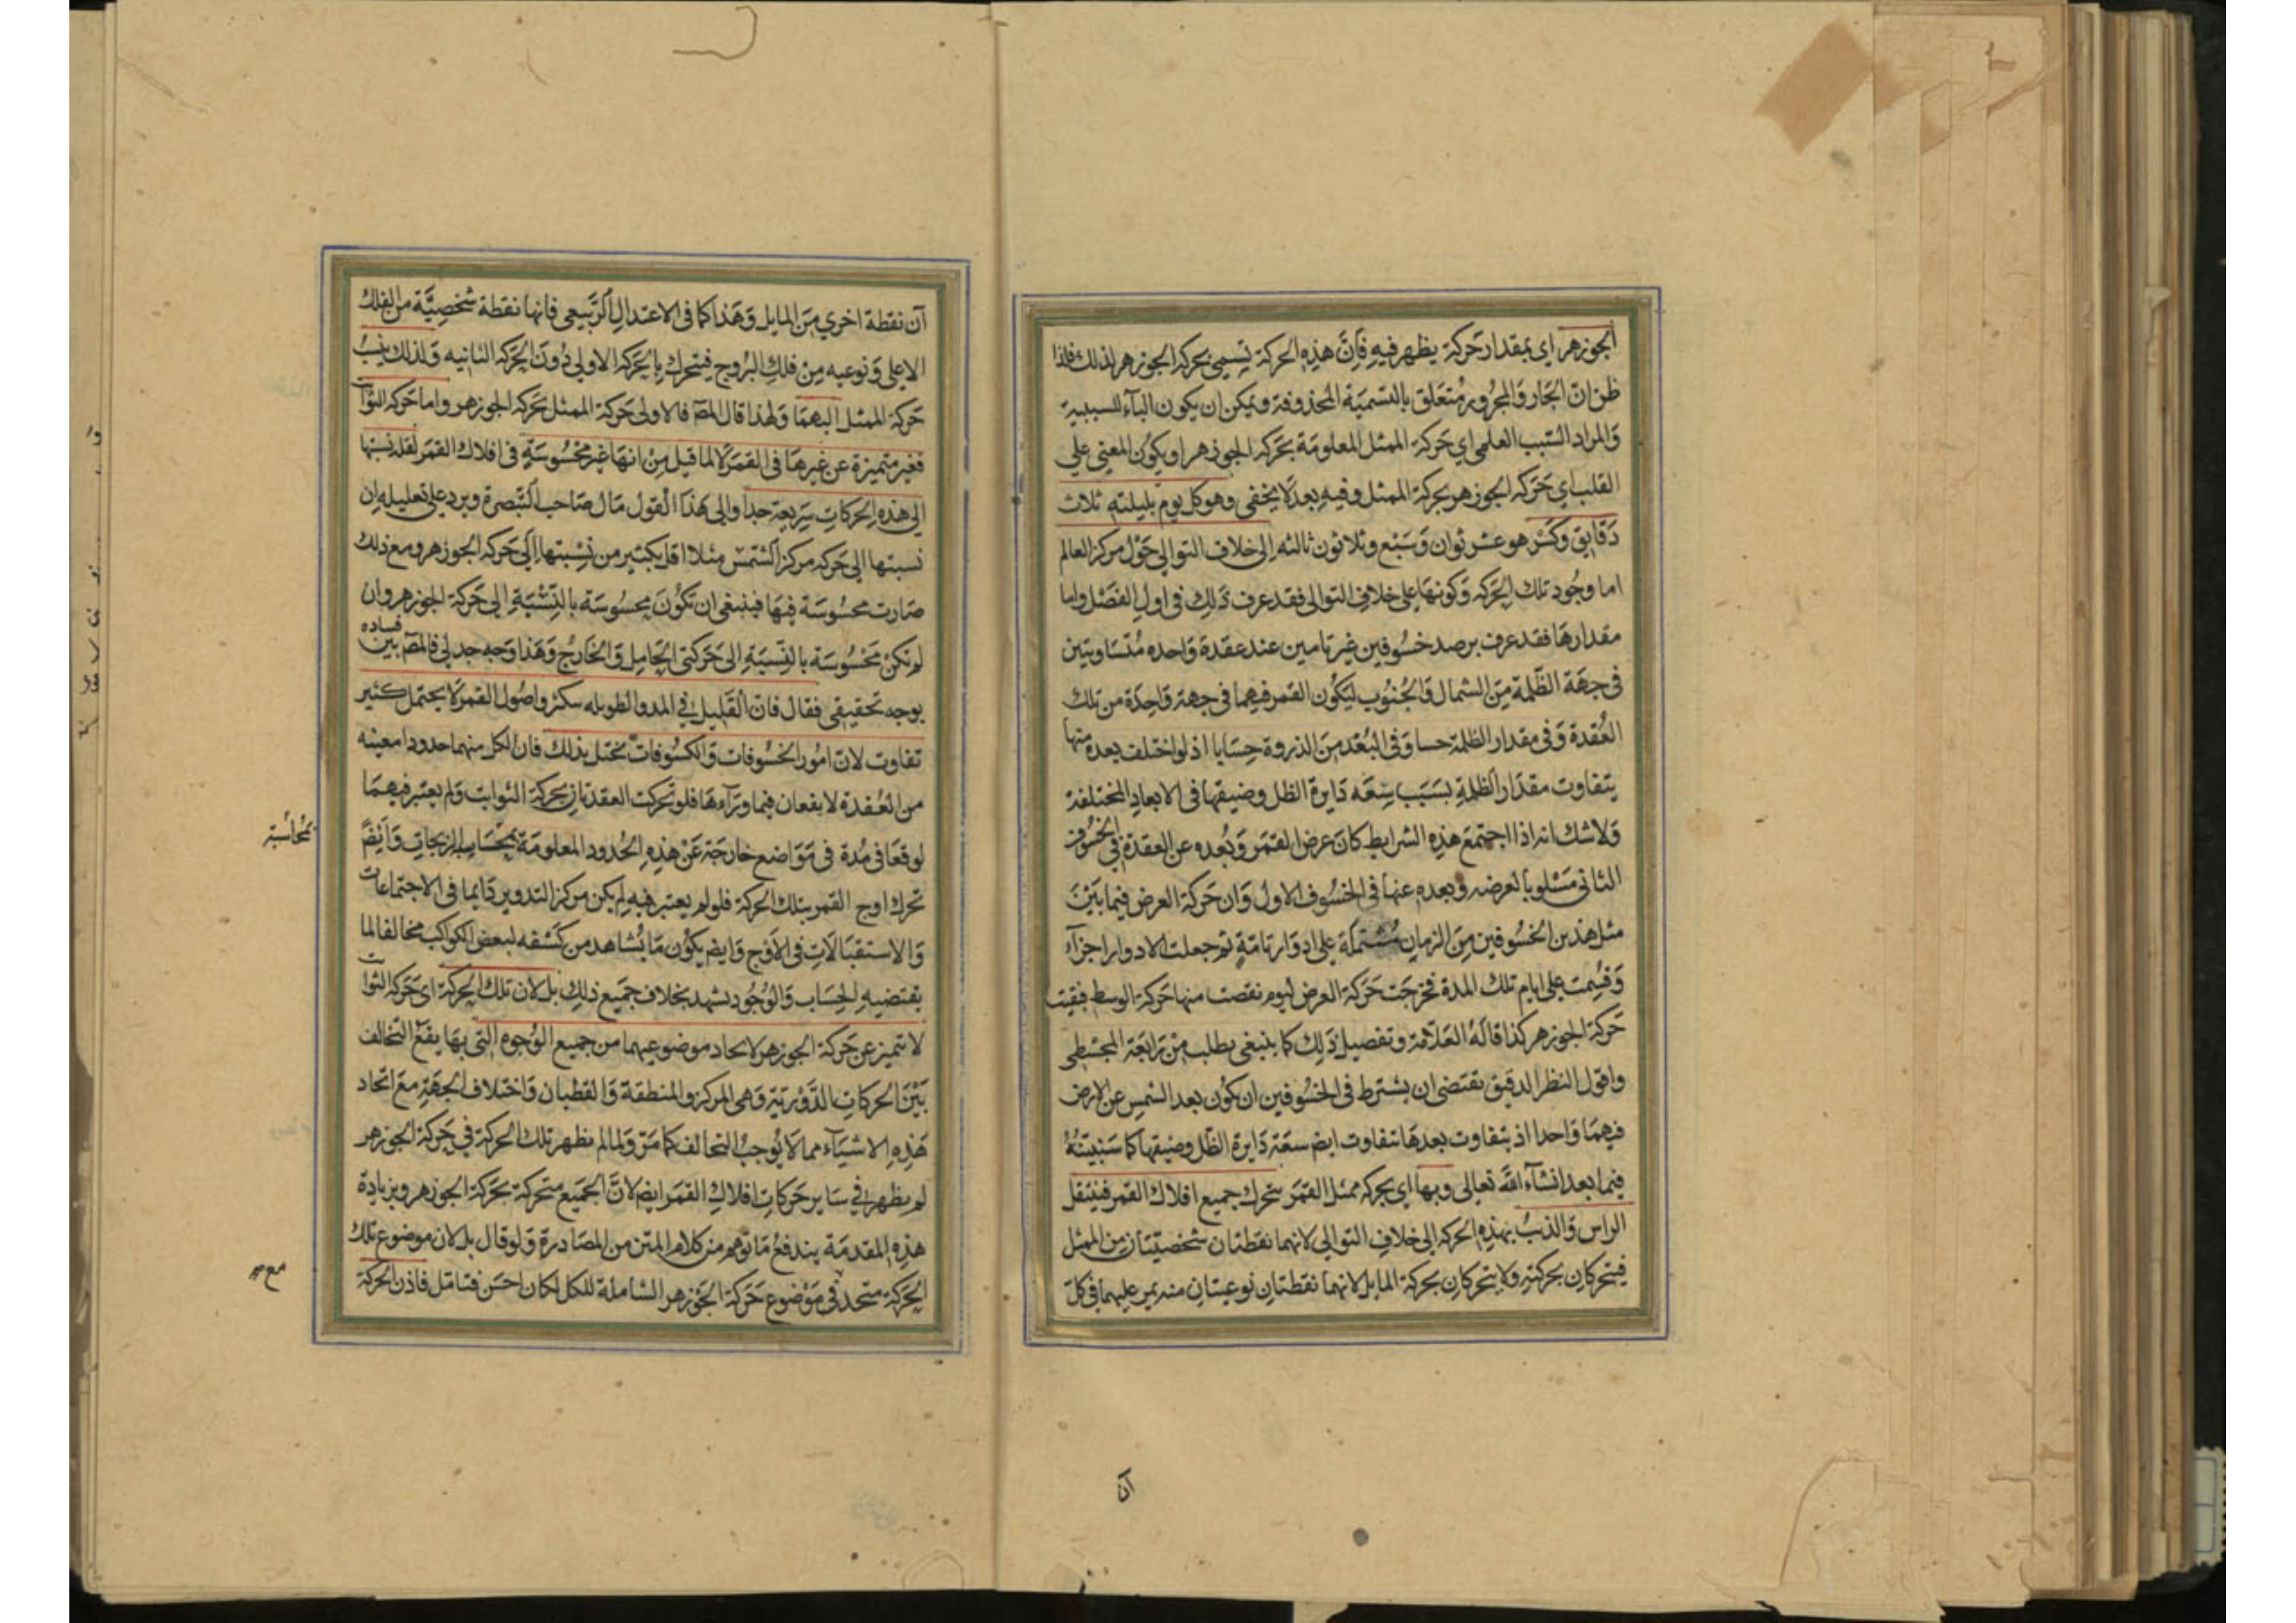 الجوزهر اي بمقدار حركة يظهر فيه فان هذه الحركة تسمى بحركة الجوزهر لذلك فلذا
ظن ان الجار والمجرور متعلق بالتسمية المحذوفة ويمكن ان يكون الباء للسببية
والمراد السبب العلمي اي حركة الممثل المعلومة بحركة الجوزهر او يكون المعني علي
القلب اي حركة الجوزهر بحركة الممثل وفيه بعد لا يخفى وهو كل يوم بليلته ثلاث
دقايق وكسر هو عشر ثوان وسبع وثلاثون ثالثه الى خلاف التوالي حول مركز العالم
اما وجود تلك الحركه وكونها على خلاف التوالي فقد عرف ذلك في اول الفصل واما
مقدارها فقد عرف برصد خسوفين غير تامين عند عقدة واحده متساويتين
في جهة الظلمة من الشمال والجنوب ليكون القمر فيهما في جهة واحدة من تلك
العقدة وفي مقدار الظلمة حسا وفي البعد من الذروة حسابا اذ لو اختلف بعده منها
يتفاوت مقدار الظلمة بسبب سعه دايرة الظل وضيقها في الابعاد المختلفة
ولا شك انه اذا اجتمع هذه الشرايط كان عرض القمر وبعده عن العقدة في الخسوف
الثاني مسلوبا لعرضه وبعده عنها في الخسوف الاول وان حركة العرض فيما بين
مثل هذين الخسوفين من الزمان مشتملة على ادوار تامة ثم جعلت الادوار اجزاء
وقسمت على ايام تلك المدة فخرجت حركة العرض ليوم نقصت منها حركة الوسط فبقيت
حركة الجوزهر كذا قاله العلامة وتفصيل ذلك كما ينبغي يطلب من رابعة المجسطي
واقول النظر الدقيق يقتضى ان يشترط في الخسوفين ان يكون بعد الشمس عن الارض
فيهما واحدا اذ بتفاوت بعدها تتفاوت ايض سعة دايرة الظل وضيقها كما سنبينه
فيما بعد انشاء الله تعالى وبها اي بحركه ممثل القمر يتحرك جميع افلاك القمر فينتقل
الراس والذنب بهذه الحركه الى خلاف التوالي لانهما نقطتان شخصيتان من الممثل
فيتحركان بحركته ولا يتحركان بحركة المايل لانهما نقطتان نوعيتان منه يمر عليهما في كل
آن
آن نقطة اخري من المايل وهذا كما في الاعتدال الربيعي فانها نقطة شخصية من الفلك
الاعلى ونوعيه من فلك البروج فيتحرك بالحركة الاولي دون الحركة الثانيه ولذلك ينسب
حركة الممثل اليهما ولهذا قال المص فالاولى حركة الممثل بحركة الجوزهر واما حركه الثوابت
فغير متميزة عن غيرها في القمر لا لما قيل من انها غير محسوسة في افلاك القمر لقلة نسبتها
الى هذه الحركات سريعة جدا والى هذا القول مال صاحب التبصرة ويرد على تعليله ان
نسبتها الى حركه مركز الشمس مثلا اقل بكثير من نسبتها الى حركه الجوزهر ومع ذلك
صارت محسوسة فيها فينبغي ان تكون محسوسة بالنسبة الى حركة الجوزهر وان
لم تكن محسوسة بالنسبة الى حركتي الحامل والخارج وهذا وجه جدلي فالمص بين فساده
بوجه تحقيقي فقال فان القليل في المدد الطويله سيكثر واصول القمر لا يحتمل كثير
تفاوت لان امور الخسوفات والكسوفات تختل بذلك فان لكل منهما حدودا معينه
من العقدة لا يقعان فيما وراءها فلو تحركت العقدتان بحركة الثوابت ولم يعتبر فيهما
لوقعا في مدة في مواضع خارجة عن هذه الحدود المعلومة بحساب الزيجات وايض
تحرك اوج القمر بتلك الحركة فلو لم يعتبر فيه لم يكن مركز التدوير دايما في الاجتماعات
والاستقبالات في الاوج وايض يكون ما يشاهد من كسفه لبعض الكواكب مخالفا لما
يقتضيه الحساب والوجود يشهد بخلاف جميع ذلك بل لان تلك الحركة اى حركه الثوابت
لا تتميز عن حركة الجوزهر لاتحاد موضوعيهما من جميع الوجوه التي بها يقع التخالف
بين الحركات الدورية وهي المركز والمنطقة والقطبان واختلاف الجهة مع اتحاد
هذه الاشياء مما لا يوجب التخالف كما مر ولما لم يظهر تلك الحركة في حركة الجوزهر
لم يظهر في ساير حركات افلاك القمر ايض لان الجميع متحركة بحركة الجوزهر وبزيادة
هذه المقدمة يندفع ما توهم من كلام المتن من المصادرة ولو قال بل لان موضوع تلك
الحركة متحد في موضوع حركة الجوزهر الشاملة للكل لكان احسن فتامل فاذن الحركة